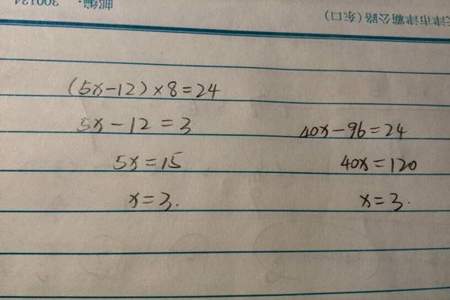 (5x-12)×8=24
5x-12=3
5x=15
x=3.
40x-96=24
40x=120
x=3.